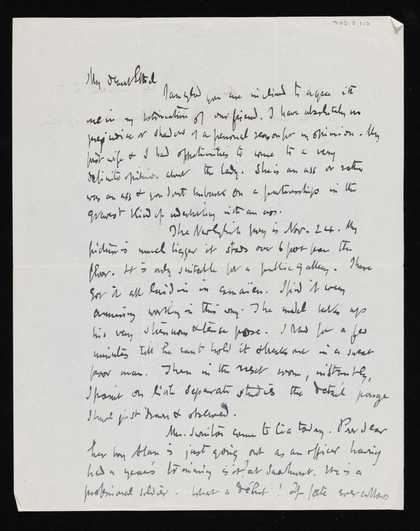 My dear Ethel
I am glad you are inclined to agree with
me in my estimation of our friend. I have absolutely no
prejudice or shadow of a personal reason for my opinion. My
poor wife & I had opportunities to come to a very
definite opinion about the lady. She is an ass or rather
was an ass & you don't embark on a partnership in the
gravest kind of undertaking with an ass.
The New English jury is Nov. 24. My
picture is much bigger it stands over 6 foot from the
floor. It is only suitable for a public gallery. I have
got it all laid in in camaieu. I find it very
amusing working in this way. The model takes up
his very strenuous & tense pose. I draw for a few
minutes till he can't hold it & breaks out in a sweat
poor man. Then in the next room, instantly,
I paint on little separate studies the detail passage
I have just drawn & observed.
Mrs. Swinton came to tea today. Poor dear
her boy Alan is just going out as an officer having
had a year's training is it at Sandhurst. He is a
professional soldier. What a début! If fate ever allows